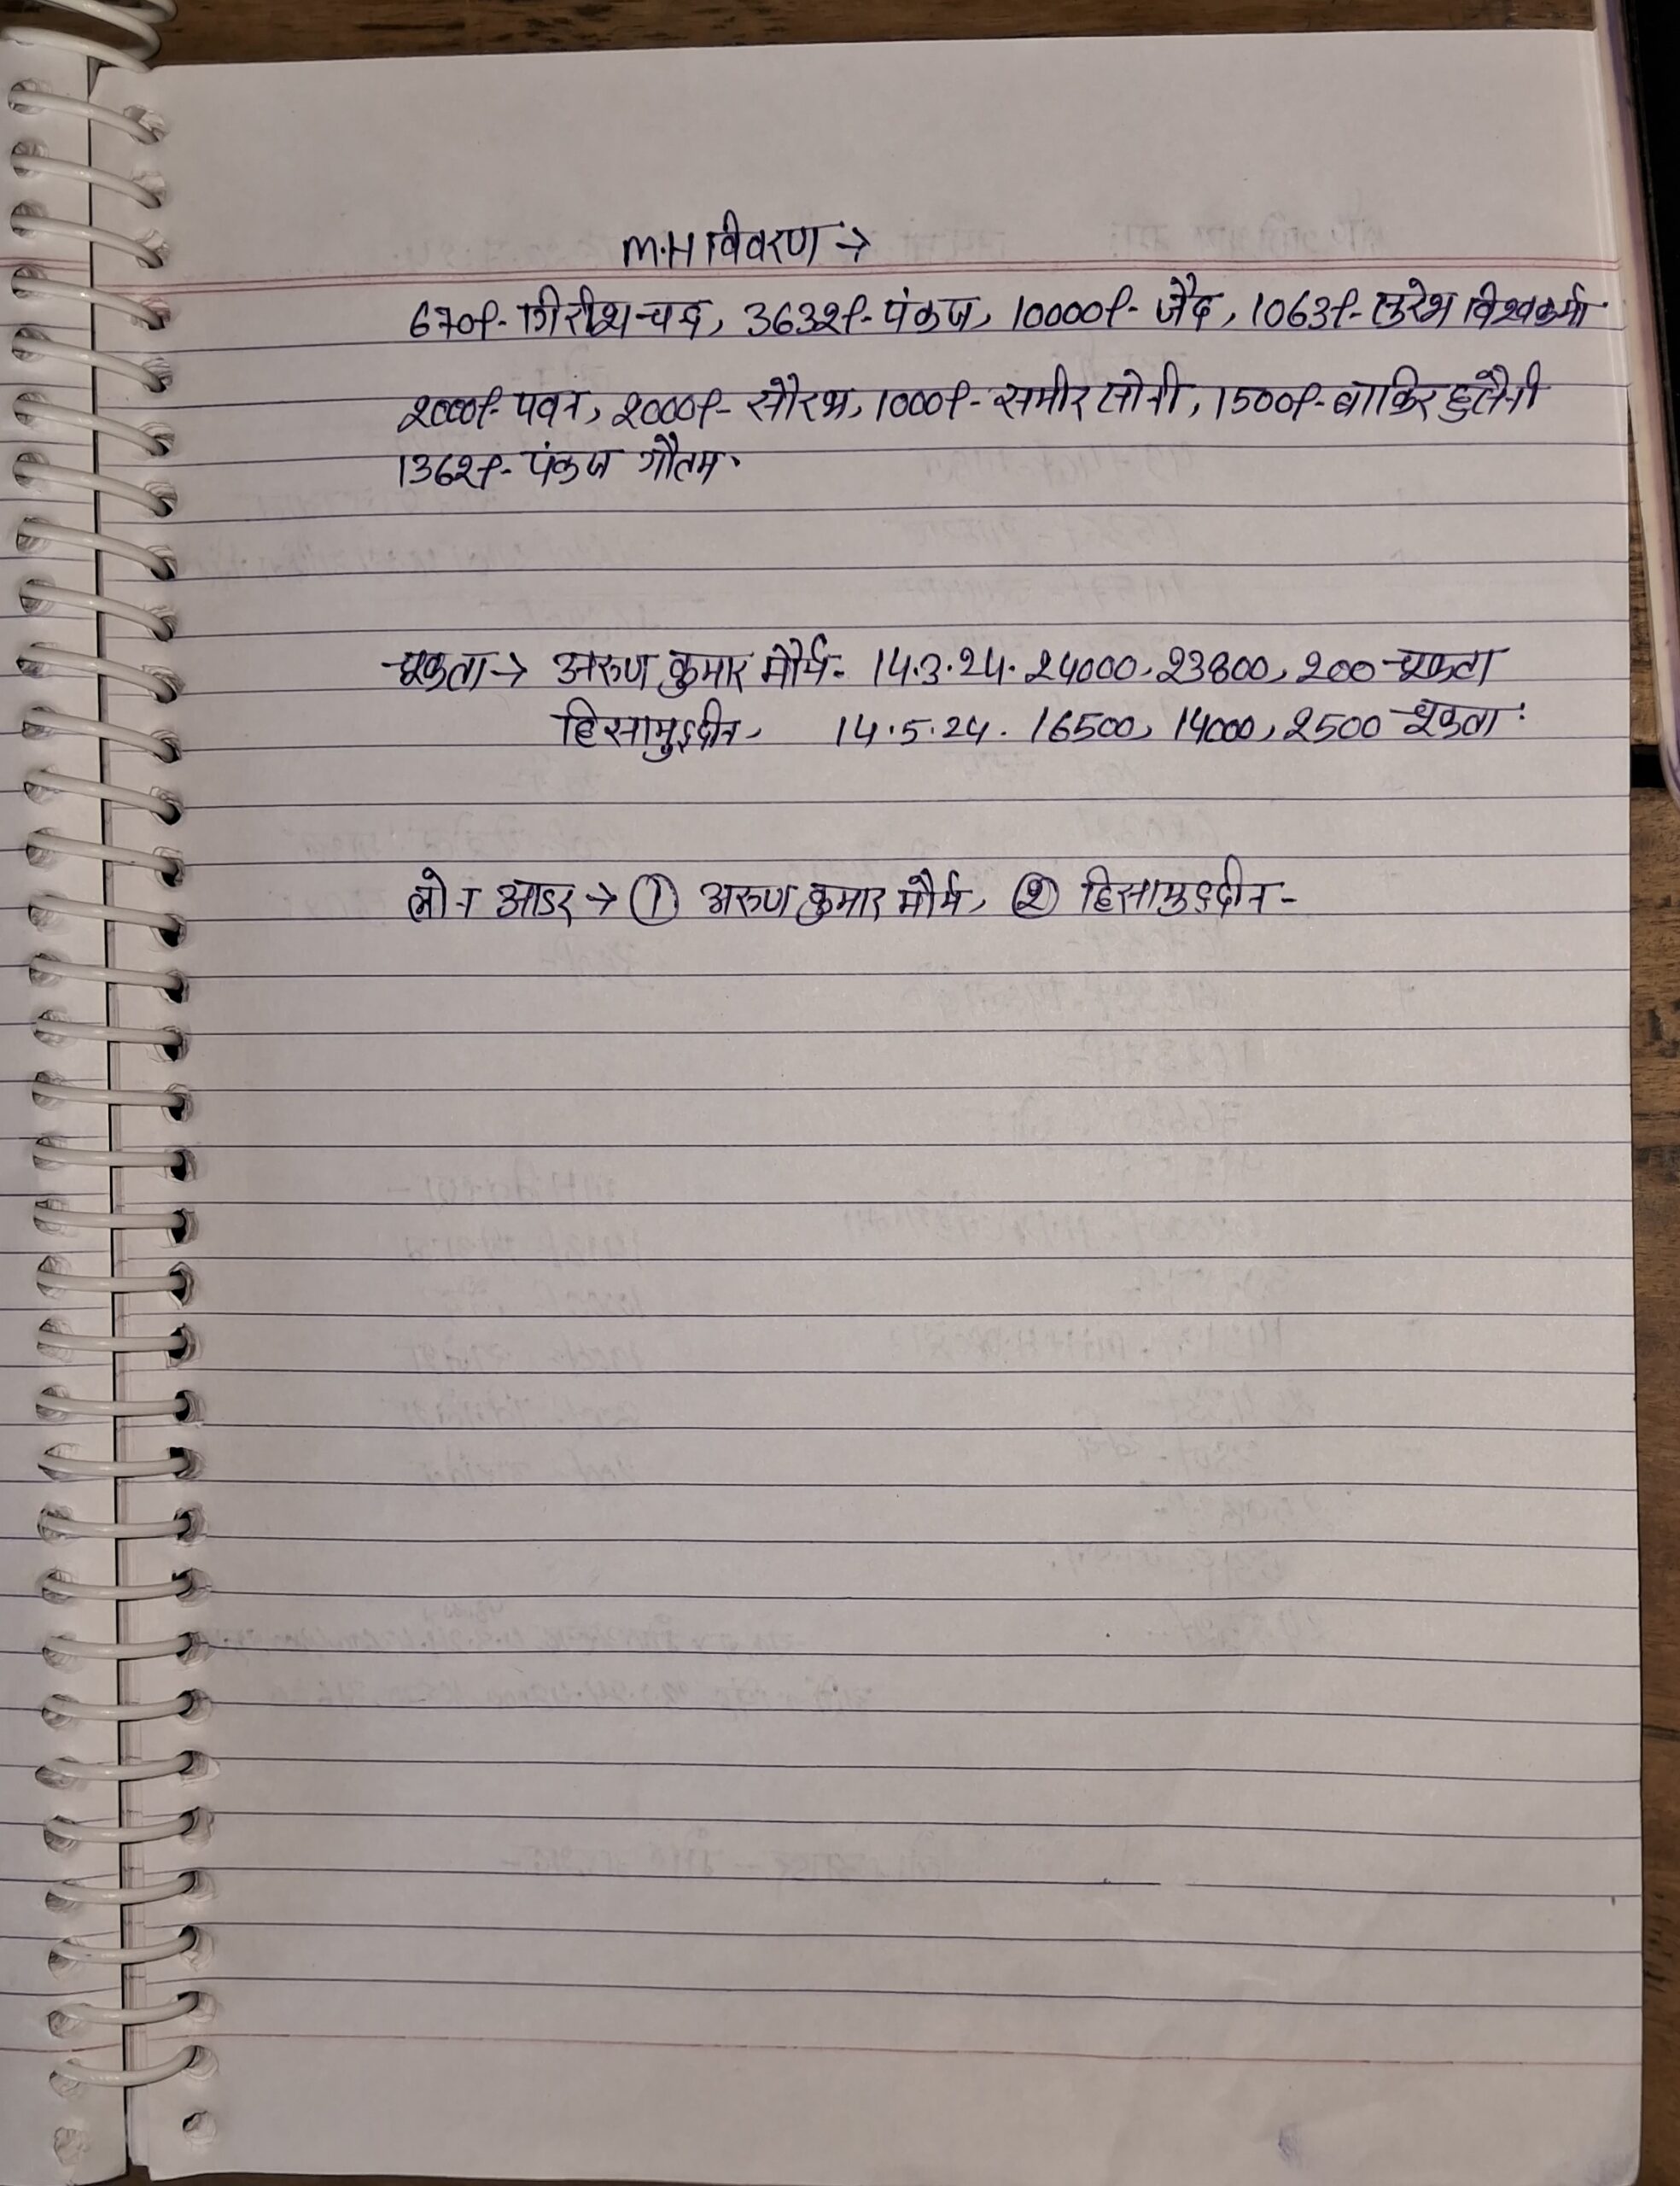 M.H विवरण →
670/- गिरीश चन्द्र, 3632/- पंकज, 10000/- जैद, 1063/- सुरेश विश्वकर्मा
2000/- पवन, 2000/- सौरभ, 1000/- समीर सोनी, 1500/- बाकिर हुसैनी
1362/- पंकज गौतम.
चुकता → अरुण कुमार मौर्य - 14.3.24. 24000, 23800, 200 चुकता
हिसामुद्दीन, 14.5.24. 16500, 14000, 2500 चुकता
लोन आडर → ① अरुण कुमार मौर्य, ② हिसामुद्दीन -